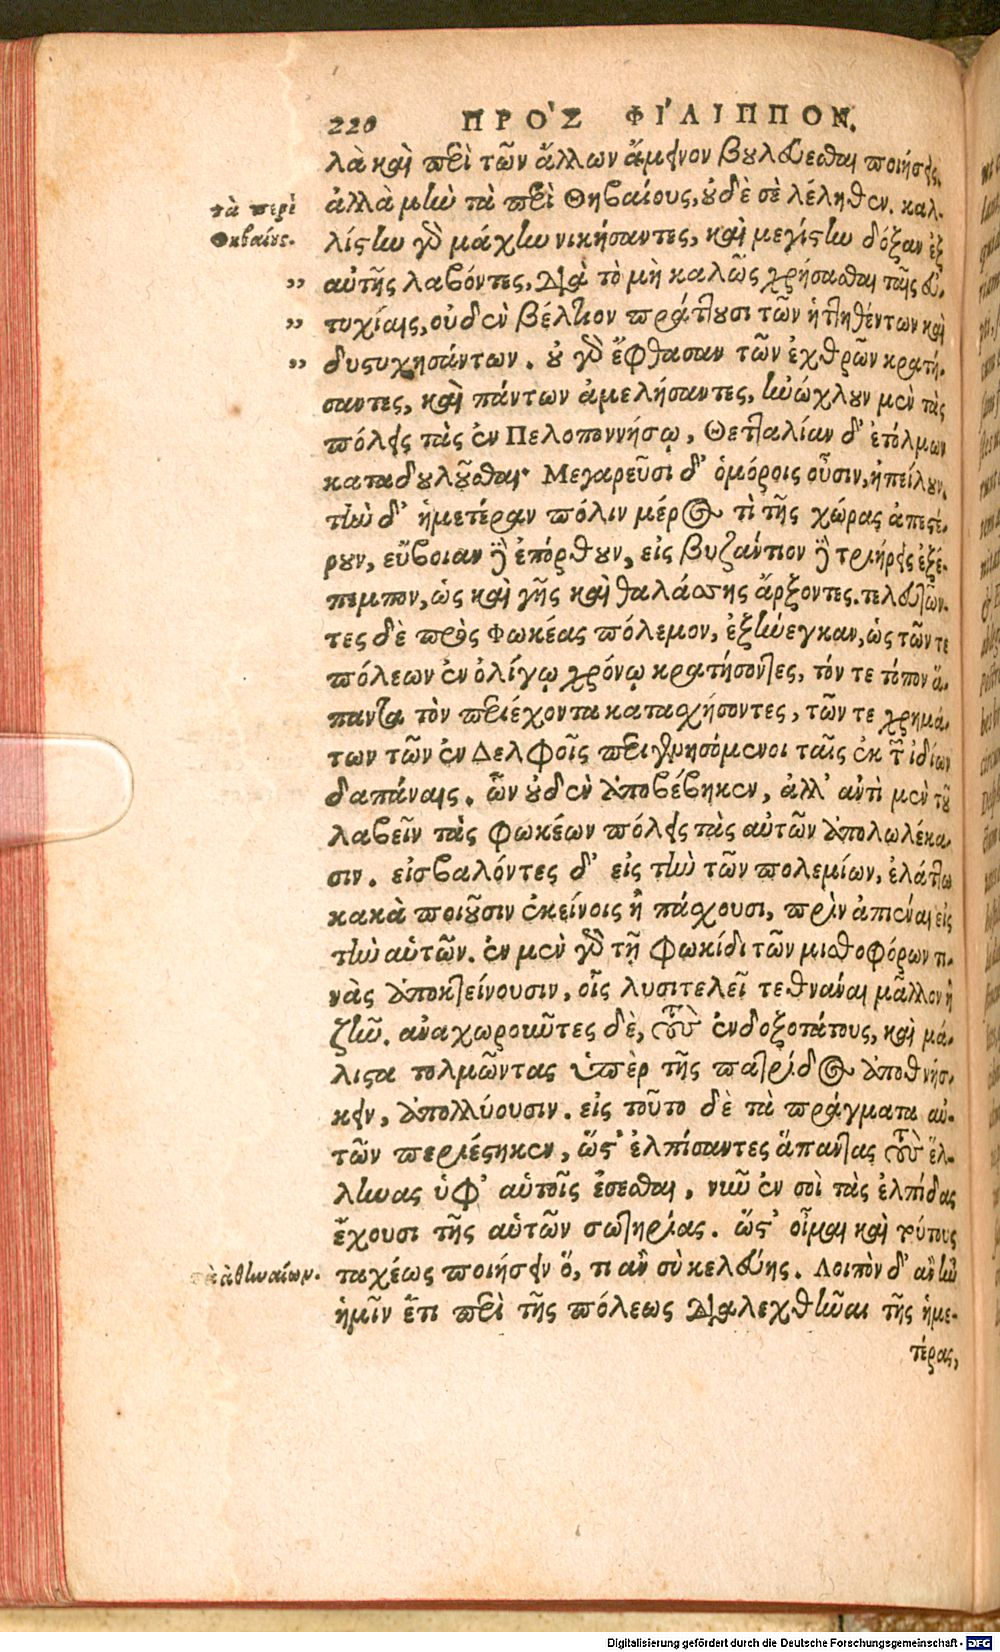 220 ΠΡΟ'Σ ΦΙ'ΛΙΠΠΟΝ.
λὰ καὶ περὶ τῶν ἄλλων ἄμεινον βουλεύεσθαι ποιήσεις.
ἀλλὰ μὴν τὰ περὶ Θηβαίους, οὐδὲ σὲ λέληθεν. καλ-
τὰ περὶ
Θηβαίους.
λίστῃ γὰρ μάχῃ νικήσαντες, καὶ μεγίστην δόξαν ἐξ
αὐτῆς λαβόντες, διὰ τὸ μὴ καλῶς χρῆσθαι ταῖς εὐ-
τυχίαις, οὐδὲν βέλτιον πράττουσι τῶν ἡττηθέντων καὶ
δυστυχησάντων. οὐ γὰρ ἔφθασαν τῶν ἐχθρῶν κρατή-
σαντες, καὶ πάντων ἀμελήσαντες, ἠνώχλουν μὲν τὰς
πόλεις τὰς ἐν Πελοποννήσῳ, Θετταλίαν δ' ἐτόλμων
καταδουλοῦσθαι· Μεγαρεῦσι δ' ὁμόροις οὖσιν, ἠπείλουν.
τὴν δ' ἡμετέραν πόλιν μέρος τὶ τῆς χώρας ἀπεστέ-
ρουν, εὔβοιαν δὲ ἐπόρθουν, εἰς βυζάντιον δὲ τριήρεις ἐξέ-
πεμπον, ὡς καὶ γῆς καὶ θαλάσσης ἄρξοντες. τελευτῶν-
τες δὲ πρὸς Φωκέας πόλεμον, ἐξήνεγκαν, ὡς τῶν τε
πόλεων ἐν ὀλίγῳ χρόνῳ κρατήσοντες, τόν τε τόπον ἅ-
παντα τὸν περιέχοντα κατασχήσοντες, τῶν τε χρημά-
των τῶν ἐν Δελφοῖς περιγενησόμενοι ταῖς ἐκ τῶν ἰδίων
δαπάναις. ὧν οὐδὲν ἀποβέβηκεν, ἀλλ' αὐτὶ μὲν τοῦ
λαβεῖν τὰς Φωκέων πόλεις τὰς αὐτῶν ἀπολωλέκα-
σιν. εἰσβαλόντες δ' εἰς τὴν τῶν πολεμίων, ἐλάττω
κακὰ ποιοῦσιν ἐκείνοις ἢ πάσχουσι, πρὶν ἀπιέναι εἰς
τὴν αὑτῶν. ἐν μὲν γὰρ τῇ Φωκίδι τῶν μισθοφόρων τι-
νὰς ἀποκτείνουσιν, οἷς λυσιτελεῖ τεθνάναι μᾶλλον ἢ
ζῆν. ἀναχωροῦντες δὲ, τοὺς ἐνδοξοτάτους, καὶ μά-
λιστα τολμῶντας ὑπὲρ τῆς πατρίδος ἀποθνήσ-
κειν, ἀπολλύουσιν. εἰς τοῦτο δὲ τὰ πράγματα αὐ-
τῶν περιέστηκεν, ὥστ' ἐλπίσαντες ἅπαντας τοὺς ἕλ-
ληνας ὑφ' αὑτοῖς ἔσεσθαι, νῦν ἐν σοὶ τὰς ἐλπίδας
ἔχουσι τῆς αὑτῶν σωτηρίας. ὥστ' οἶμαι καὶ τούτους
ταχέως ποιήσειν ὅ, τι ἂν σὺ κελεύῃς. Λοιπὸν δ' ἂν ἦν
ἡμῖν ἔτι περὶ τῆς πόλεως διαλεχθῆναι τῆς ἡμε-
τέρας,
Digitalisierung gefördert durch die Deutsche Forschungsgemeinschaft - DFG